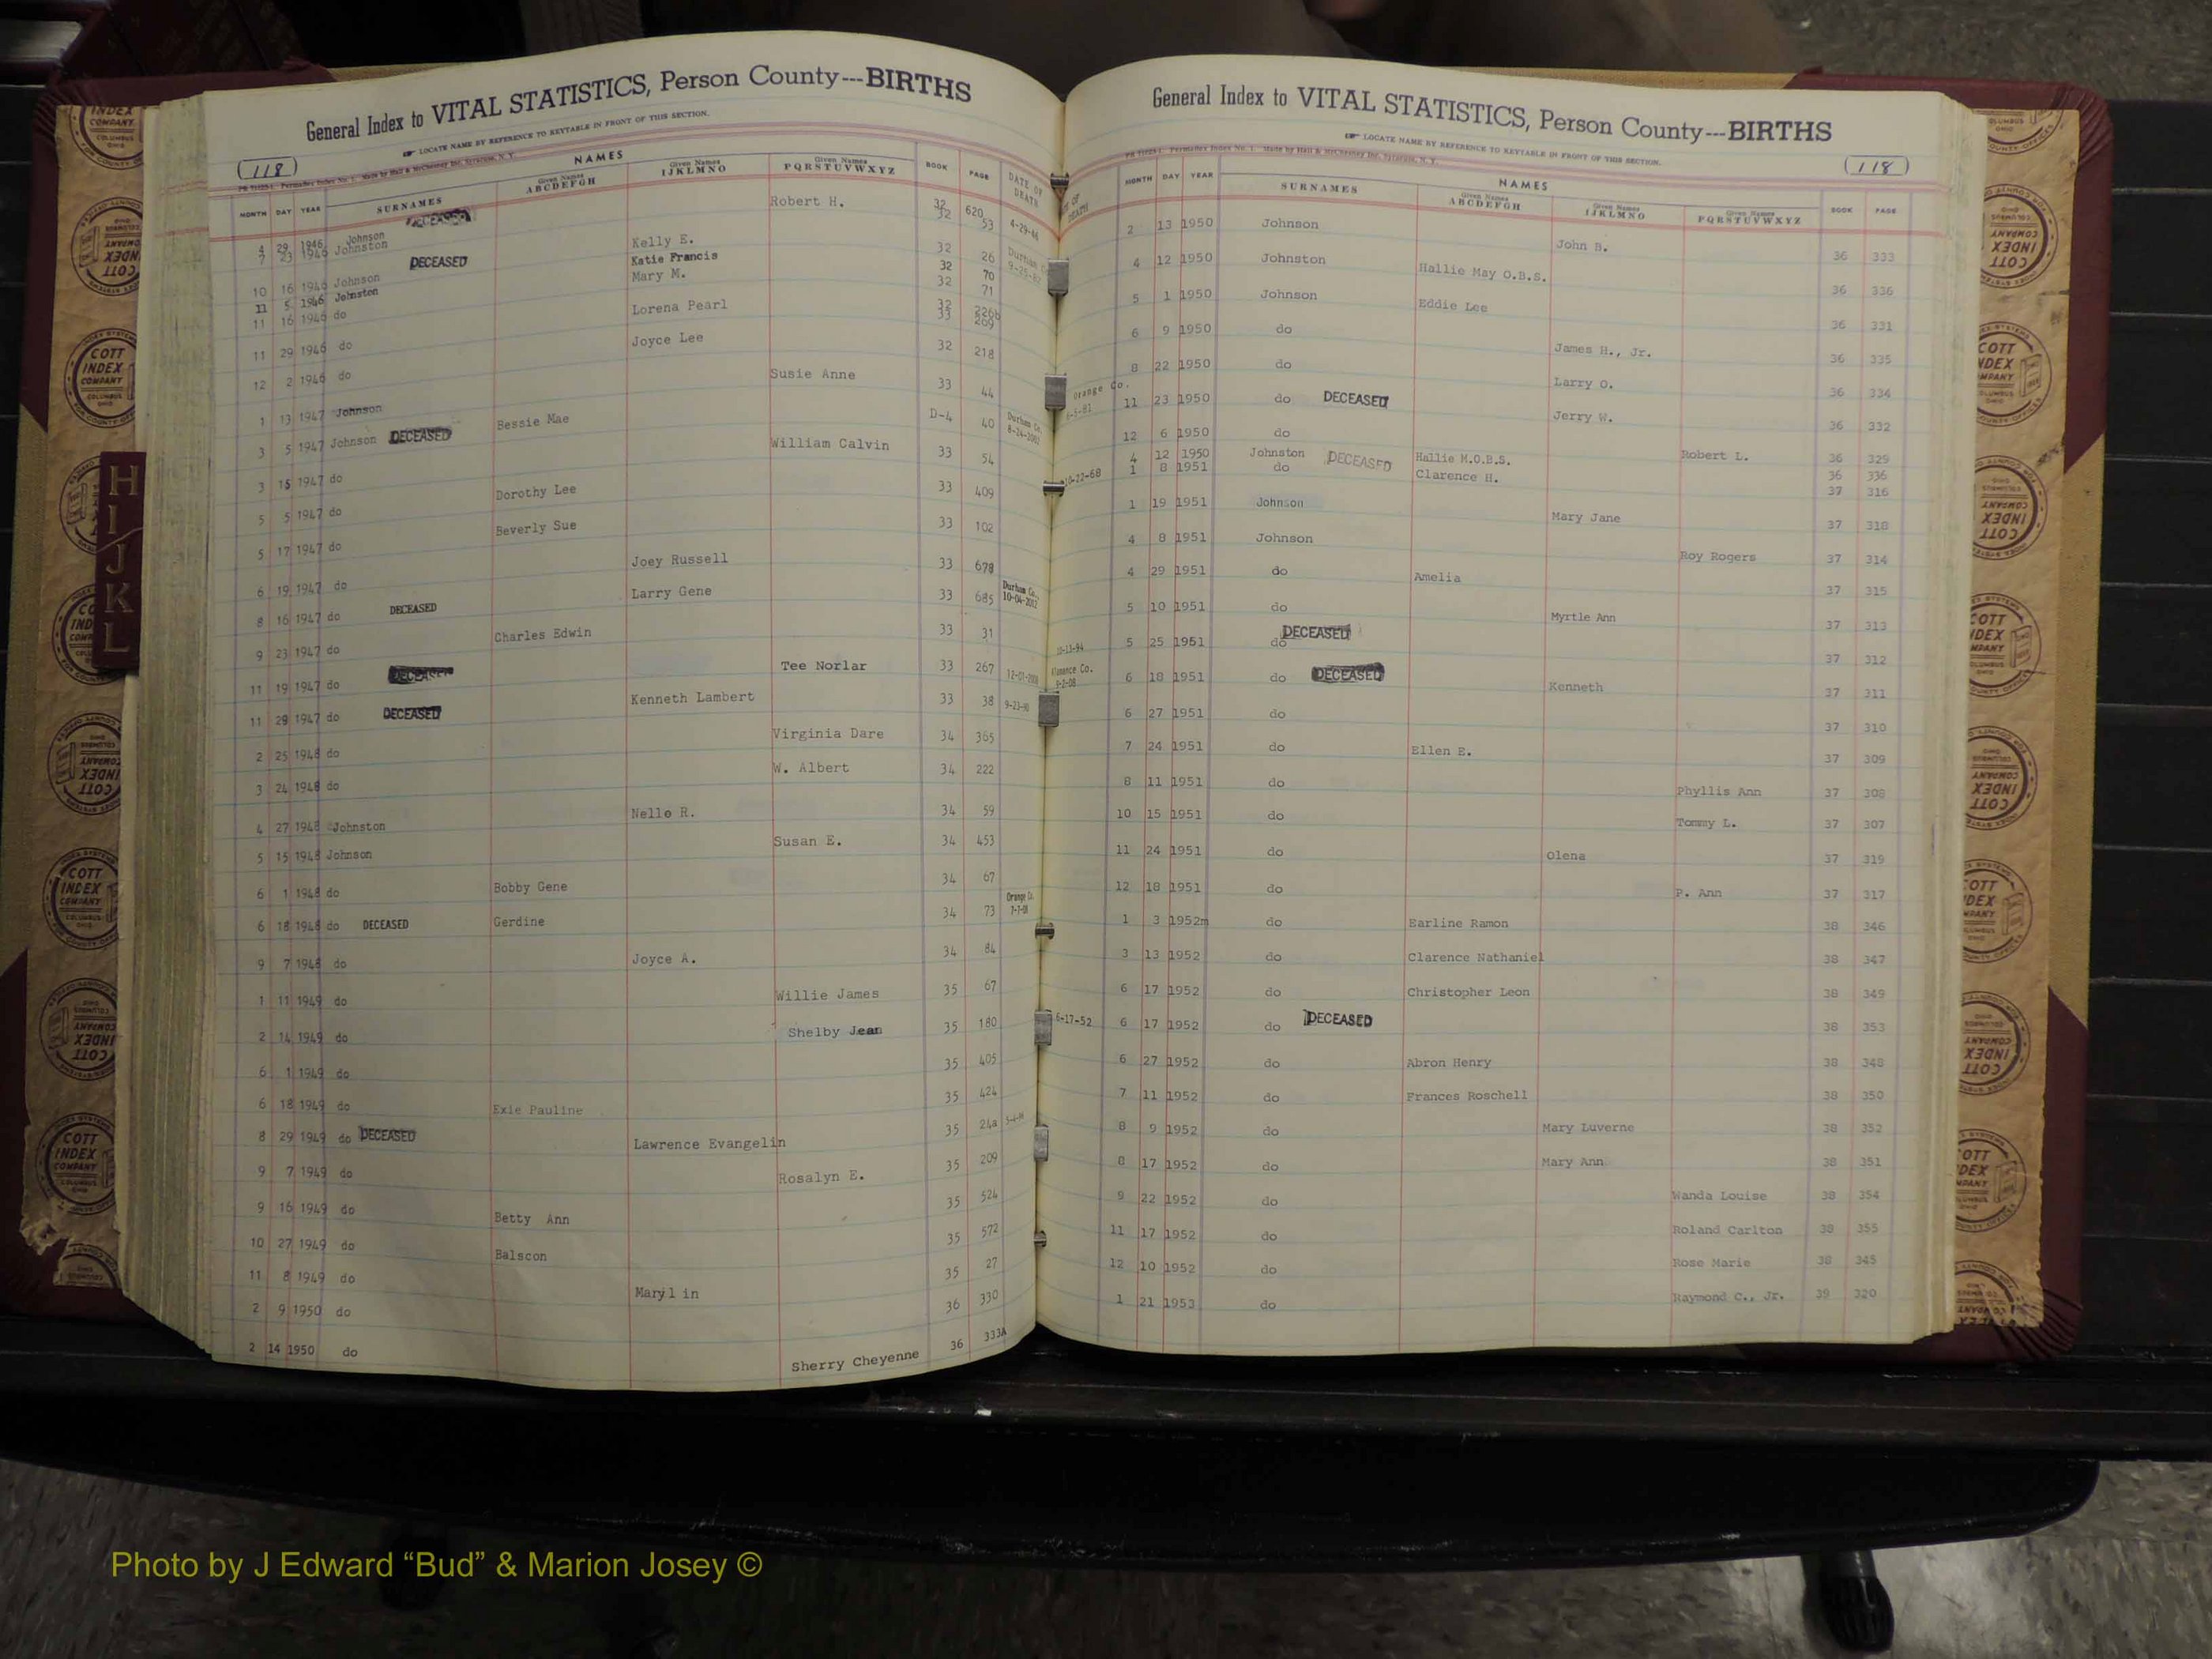 General Index to VITAL STATISTICS, Person County---BIRTHS
LOCATE NAME BY REFERENCE TO KEYTABLE IN FRONT OF THIS SECTION.
118
NAMES
MONTH DAY YEAR SURNAMES Given Names ABCDEFGH Given Names IJKLMNO Given Names PQRSTUVWXYZ BOOK PAGE DATE OF DEATH
4 29 1946 Johnson DECEASED 32 620 4-29-46
7 23 1946 Johnston Robert H. 32 53
10 16 1946 Johnson DECEASED Kelly E. 32 26 Durham Co.
11 5 1946 Johnston Katie Francis 32 70
11 16 1946 do Mary M. 32 71
11 29 1946 do Lorena Pearl 32 226b
33 209
12 2 1946 do Joyce Lee 32 218
1 13 1947 Johnson Susie Anne 33 44
3 5 1947 Johnson DECEASED Bessie Mae D-4 40 Durham Co.
3 15 1947 do William Calvin 33 54
5 5 1947 do Dorothy Lee 33 409
5 17 1947 do Beverly Sue 33 102
6 19 1947 do Joey Russell 33 678
8 16 1947 do DECEASED Larry Gene 33 685 Durham Co., 10-04-2012
9 23 1947 do Charles Edwin 33 31
11 19 1947 do DECEASED Tee Norlar 33 267
11 29 1947 do DECEASED Kenneth Lambert 33 38 9-23-90
2 25 1948 do Virginia Dare 34 365
3 24 1948 do W. Albert 34 222
4 27 1948 Johnston Nello R. 34 59
5 15 1948 Johnson Susan E. 34 453
6 1 1948 do Bobby Gene 34 67
6 18 1948 do DECEASED Gerdine 34 73 Orange Co.
9 7 1948 do Joyce A. 34 84
1 11 1949 do Willie James 35 67
2 14 1949 do Shelby Jean 35 180
6 1 1949 do 35 405
6 18 1949 do Exie Pauline 35 424
8 29 1949 do DECEASED Lawrence Evangelin 35 24a
9 7 1949 do Rosalyn E. 35 209
9 16 1949 do Betty Ann 35 524
10 27 1949 do Balscon 35 572
11 8 1949 do Maryl in 35 27
2 9 1950 do 36 330
2 14 1950 do Sherry Cheyenne 36 333A
General Index to VITAL STATISTICS, Person County---BIRTHS
LOCATE NAME BY REFERENCE TO KEYTABLE IN FRONT OF THIS SECTION.
118
NAMES
MONTH DAY YEAR SURNAMES Given Names ABCDEFGH Given Names IJKLMNO Given Names PQRSTUVWXYZ BOOK PAGE
2 13 1950 Johnson John B. 36 333
4 12 1950 Johnston Hallie May O.B.S. 36 336
5 1 1950 Johnson Eddie Lee 36 331
6 9 1950 do James H., Jr. 36 335
8 22 1950 do Larry O. 36 334
Orange Co. 11 23 1950 do DECEASED Jerry W. 36 332
12 6 1950 do Robert L. 36 329
4 12 1950 Johnston DECEASED Hallie M.O.B.S. 36 336
10-22-68 1 8 1951 do Clarence H. 37 316
1 19 1951 Johnson Mary Jane 37 318
4 8 1951 Johnson Roy Rogers 37 314
4 29 1951 do Amelia 37 315
5 10 1951 do Myrtle Ann 37 313
5 25 1951 do DECEASED 37 312
6 18 1951 do DECEASED Kenneth 37 311
6 27 1951 do 37 310
7 24 1951 do Ellen E. 37 309
8 11 1951 do Phyllis Ann 37 308
10 15 1951 do Tommy L. 37 307
11 24 1951 do Olena 37 319
12 18 1951 do P. Ann 37 317
1 3 1952m do Earline Ramon 38 346
3 13 1952 do Clarence Nathaniel 38 347
6 17 1952 do Christopher Leon 38 349
6-17-52 6 17 1952 do DECEASED 38 353
6 27 1952 do Abron Henry 38 348
7 11 1952 do Frances Roschell 38 350
8 9 1952 do Mary Luverne 38 352
8 17 1952 do Mary Ann 38 351
9 22 1952 do Wanda Louise 38 354
11 17 1952 do Roland Carlton 38 355
12 10 1952 do Rose Marie 38 345
1 21 1953 do Raymond C., Jr. 39 320
H
I
J
K
L
Photo by J Edward “Bud” & Marion Josey ©